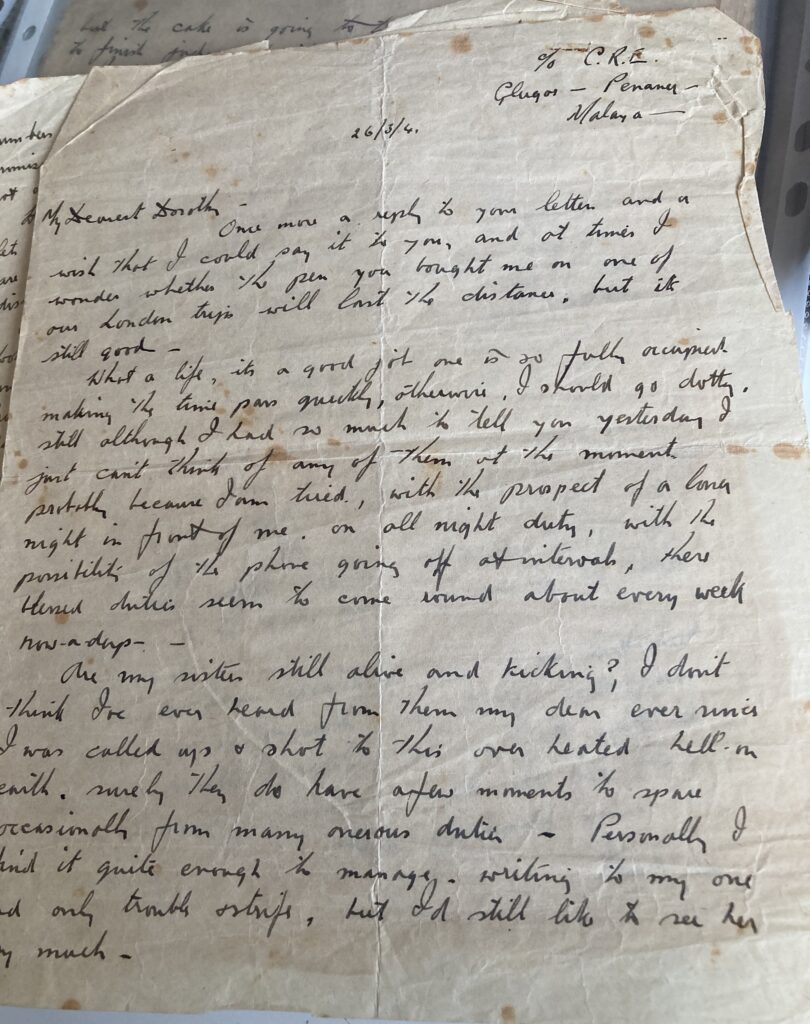 but the cake is going to
to finish
c/o C.R.E.
Glugor - Penang -
Malaya -
26/3/4.
My Dearest Dorothy -
Once more a reply to your letter and a
wish that I could say it to you, and at times I
wonder whether the pen you bought me on one of
our London trips will last the distance, but its
still good -
What a life, its a good job one is so fully occupied
making the time pass quickly, otherwise, I should go dotty.
still although I had so much to tell you yesterday I
just can't think of any of them at the moment
probably because I am tired, with the prospect of a long
night in front of me. on all night duty, with the
possibility of the phone going off at intervals, these
blessed duties seem to come round about every week
now-a-days - -
Are my sisters still alive and kicking?, I don't
think I've ever heard from them my dear ever since
I was called up & shot to this over heated hell-on
earth. surely they do have a few moments to spare
occasionally from many onerous duties - Personally I
find it quite enough to manage - writing to my one
nd only trouble & strife, but I'd still like to see her
ry much -